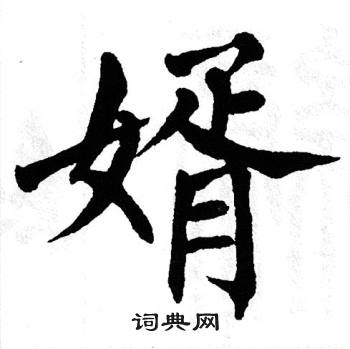 婿
词典网